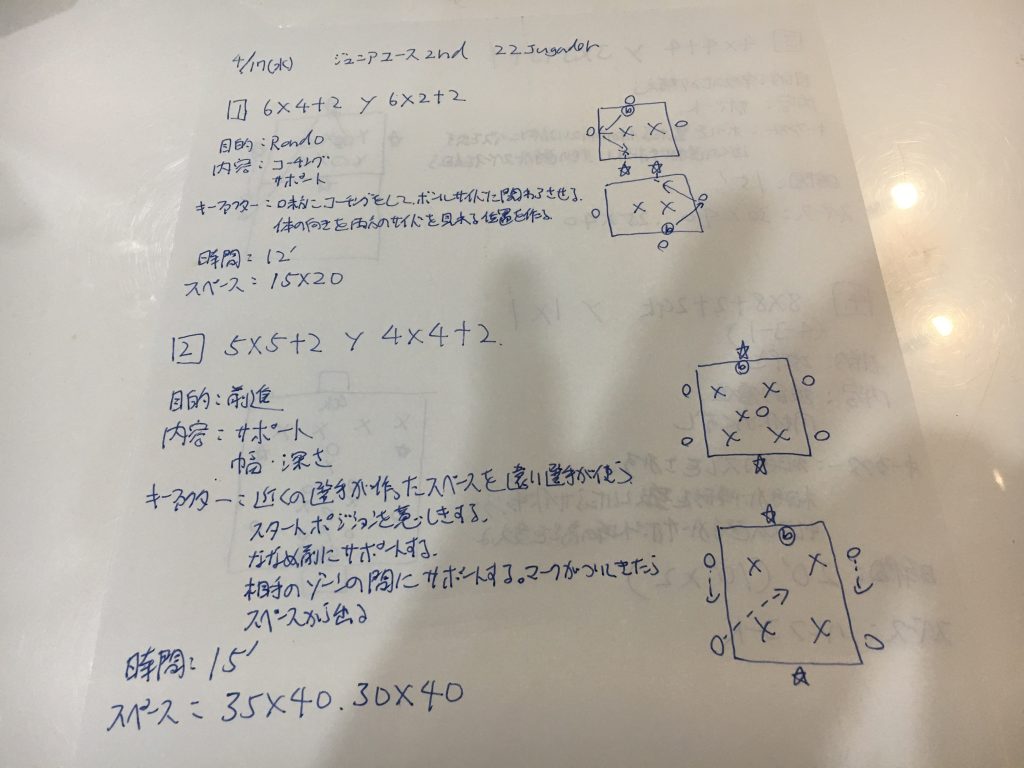 4/17(水) ジュニアユース 2nd 22 Jugador
1 6×4+2 y 6×2+2
目的：Rondo
内容：コーチング
サポート
キーファクター：コーチングをして、ボールサイドに関わらせる
体の向きを両人のサイドを見れる位置を作る
時間：12′
スペース：15×20
2 5×5+2 y 4×4+2.
目的：前進
内容：サポート
幅・深さ
キーファクター：近くの選手が作ったスペースを遠い選手が使う
スタートポジションを意しきする。
ななめ前にサポートする。
相手のゾーンの間にサポートする。マークがついてきたら
スペースから出る
時間：15′
スペース：35×40.30×40